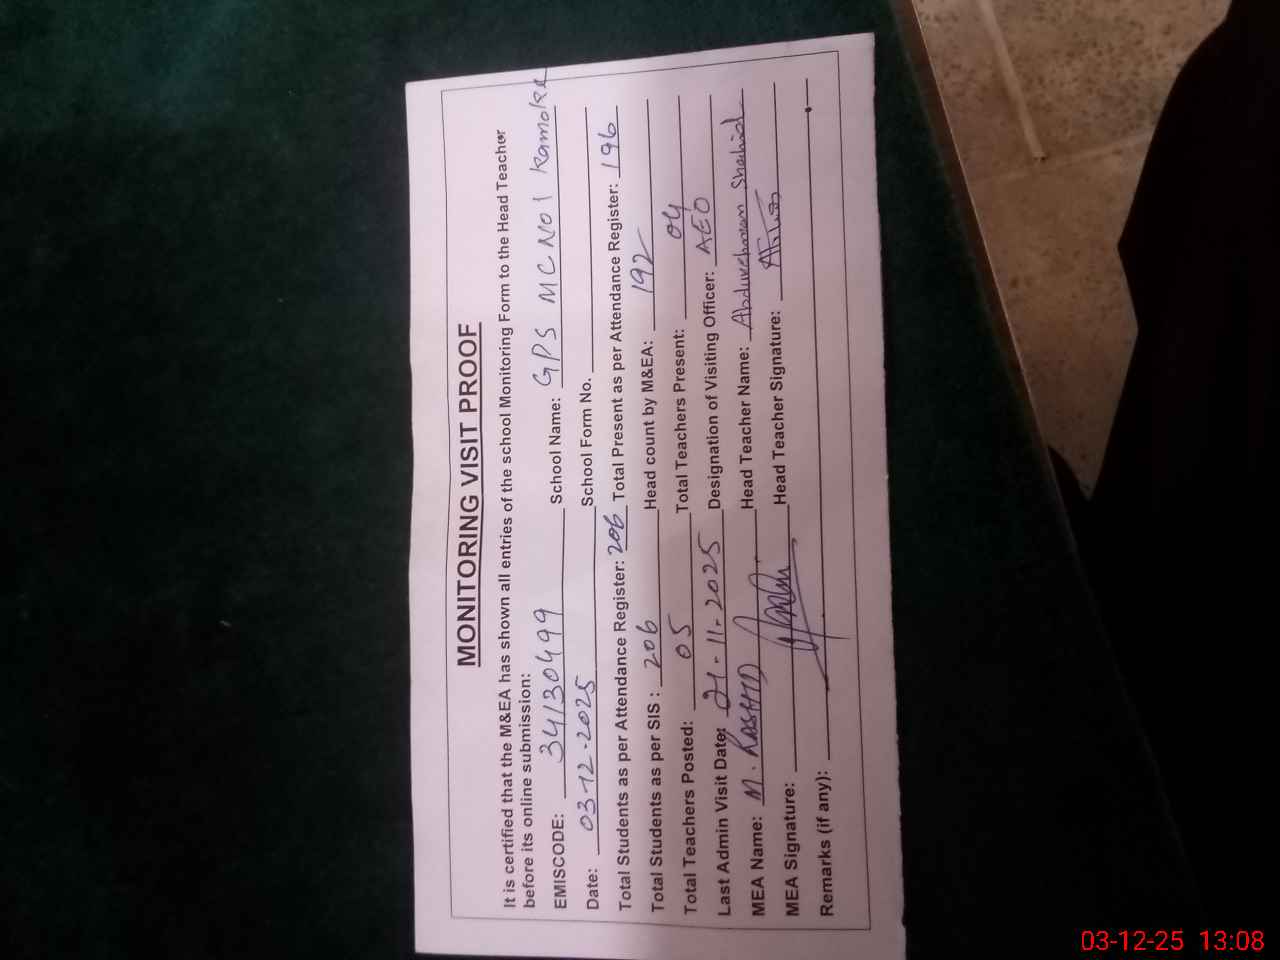 MONITORING VISIT PROOF
It is certified that the M&EA has shown all entries of the school Monitoring Form to the Head Teacher
before its online submission:
EMISCODE: 34130499 School Name: GPS MC NO 1 Kamoke
Date: 03-12-2025 School Form No.
Total Students as per Attendance Register: 206 Total Present as per Attendance Register: 196
Total Students as per SIS : 206 Head count by M&EA: 192
Total Teachers Posted: 05 Total Teachers Present: 04
Last Admin Visit Date: 21-11-2025 Designation of Visiting Officer: AEO
MEA Name: M. RASHID Head Teacher Name: Shahid
MEA Signature: Head Teacher Signature:
Remarks (if any):
03-12-25 13:08